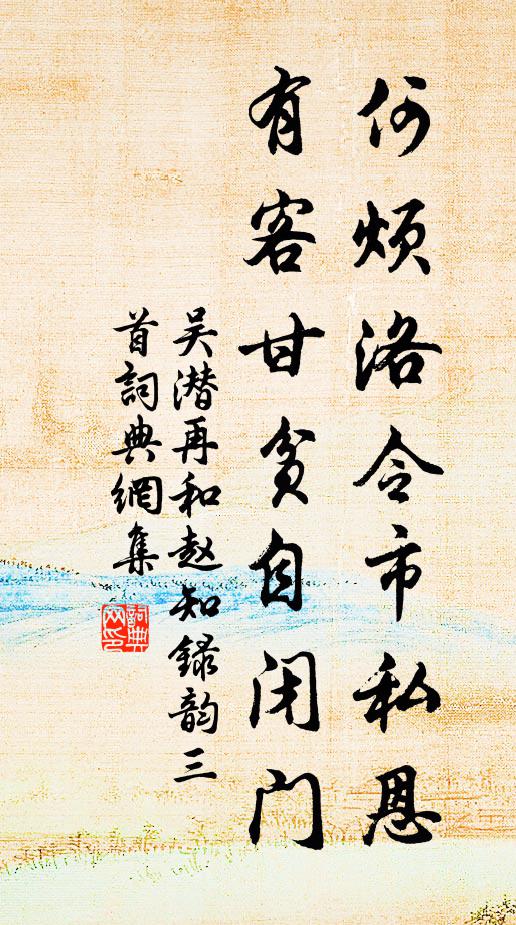 何烦洛令市私恩
有客甘贫自闭门
吴潜再和赵知録韵三
首詞典網集
詞典